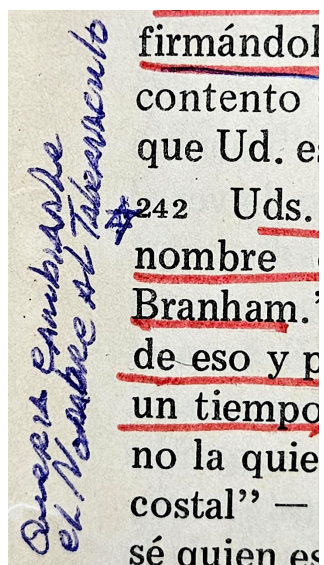 Queria cambiarle
el Nombre al Tabernaculo
firmándol
contento
que Ud. es
#242 Uds.
nombre
Branham."
de eso y p
un tiempo
no la quie
costal” —
sé quien es